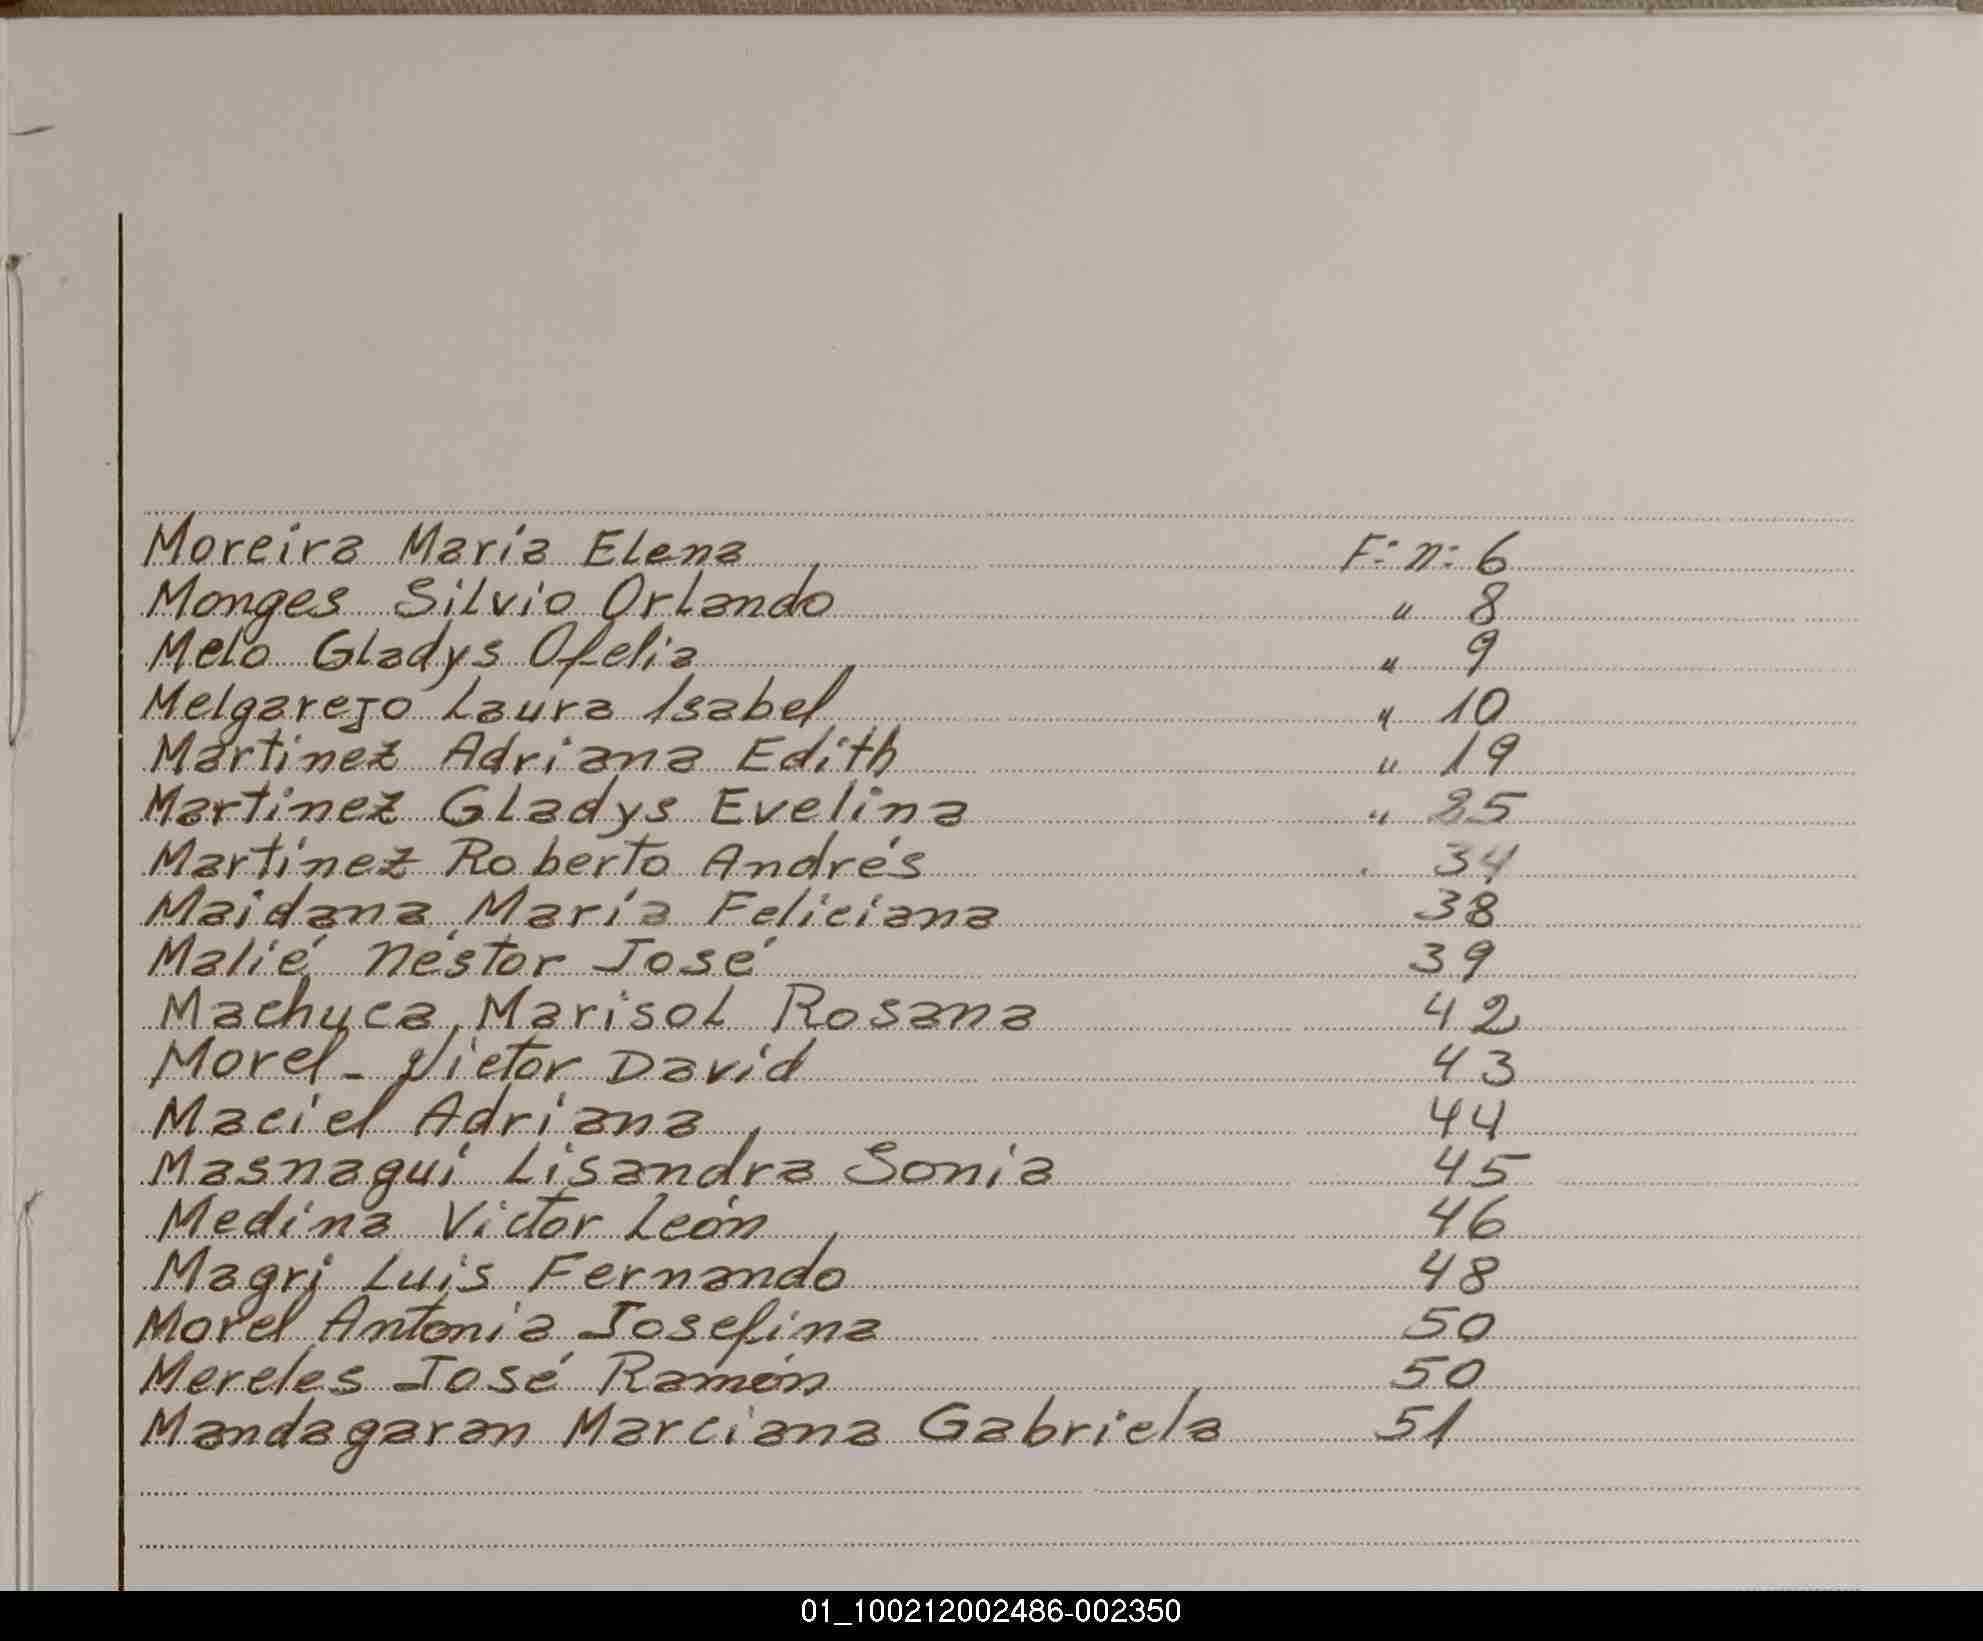 Moreira María Elena F: n: 6
Monges Silvio Orlando " 8
Melo Gladys Ofelia " 9
Melgarejo Laura Isabel " 10
Martínez Adriana Edith " 19
Martínez Gladys Evelina " 25
Martínez Roberto Andrés 34
Maidana María Feliciana 38
Malié Néstor José 39
Machuca Marisol Rosana 42
Morel - Victor David 43
Maciel Adriana 44
Masnagui Lisandra Sonia 45
Medina Victor León 46
Magri Luis Fernando 48
Morel Antonia Josefina 50
Mereles José Ramón 50
Mandagaran Marciana Gabriela 51
01_100212002486-002350